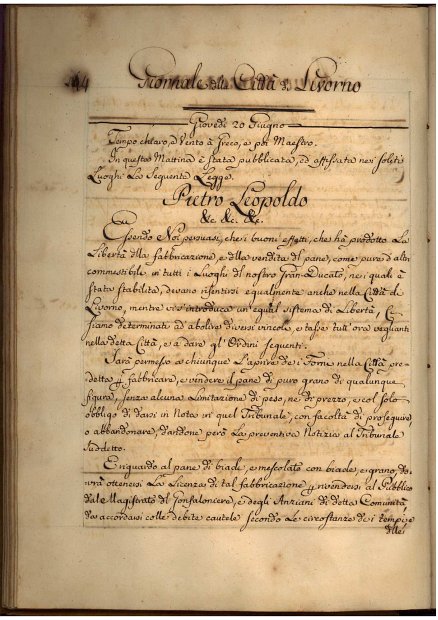 144 Giornale della Città di Livorno
Giovedì 20 Giugno
Tempo chiaro, e Vento à Greco, e poi Maestro.
In questa Mattina è stata pubblicata, ed affissata nei soliti
Luoghi La Seguente Legge.
Pietro Leopoldo
&c. &c. &c.
Essendo Noi persuasi, che i buoni effetti, che hà prodotto La
Libertà della fabbricazione e della vendita del pane, come pure d'altri
commestibili in tutti i Luoghi del nostro Gran-Ducato, nei quali è
stata stabilita, devano risentirsi equalmente anche nella Città di
Livorno, mentre vi s'introduca un'equal sistema di Libertà, Ci
siamo determinati ad abolire diversi vincoli, e tasse tutt'ora veglianti
nella detta Città, e à dare gl'Ordini seguenti.
Sarà permesso a chiunque L'aprire dei Forni nella Città pre-
detta p fabbricare, e vendere il pane di puro grano di qualunque
figura, senza alcuna Limitazione di peso, ne di prezzo, e col solo
obbligo di darsi in Nota in quel Tribunale, con facoltà di proseguire,
o abbandonare, dandone però La preventiva Notizia al Tribunale
suddetto.
E riguardo al pane di biade, e mescolato con biade, e grano, do-
vrà ottenersi La Licenza di tal fabbricazione p rivendersi al Pubblico
dal Magistrato del Gonfaloniere, e degli Anziani di detta Comunità,
da accordarsi colle debite cautele secondo Le circostanze dei tempi, e
delle